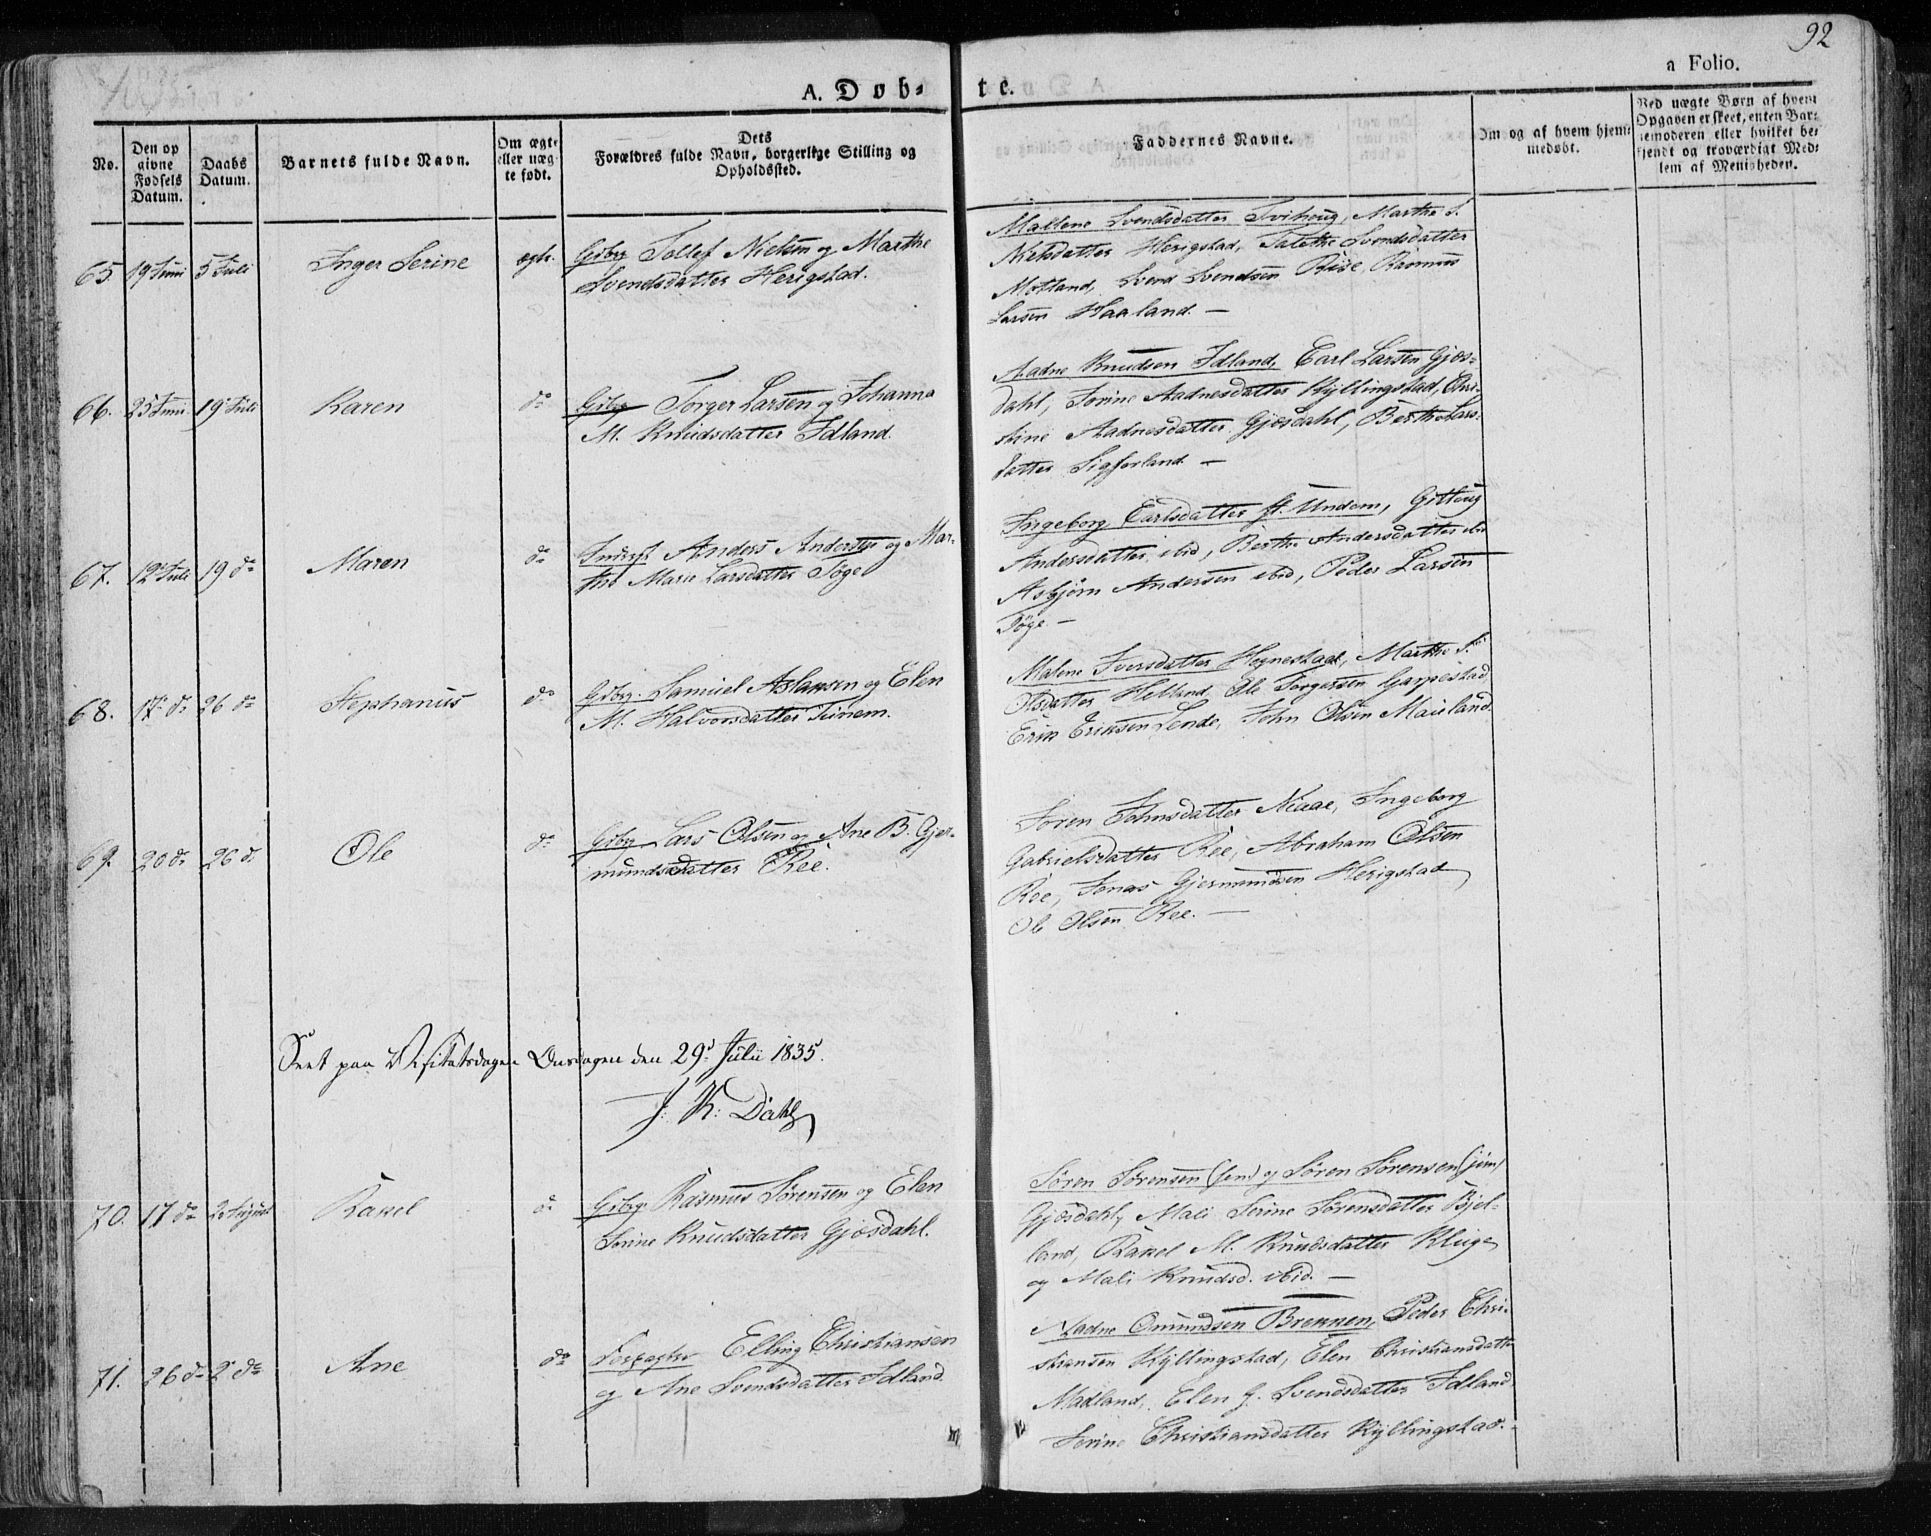 92
a Folio.
A. Døb-
te.
No.
Den op
givne
Fødsels
Datum.
Daabs
Datum.
Barnets fulde Navn.
Om ægte
eller uæg-
te født.
Dets
Forældres fulde Navn, borgerlige Stilling og
Opholdssted.
Faddernes Navne.
Om og af hvem hjem-
medøbt.
Ved uægte Børn af hvem
Opgaven er skeet, enten Bar-
nemoderen eller hvilket be-
kjendt og troværdigt Med-
lem af Menigheden.
65. 19 Juni 5 Juli Inger Serine ægte. Gdbrg Tollef Nielsen og Marthe
Svendsdatter Herigstad.
Mallene Svendsdatter Tvihoug, Marthe S.
Nielsdatter Herigstad, Talethe Svendsdatter
Motland, Svend Svendsen Riise, Rasmus
Larsen Haaland. —
66. 25 Juni 19 Juli Karen do Gdbrg Torger Larsen og Johanna
M. Knudsdatter Idland.
Aadne Knudsen Idland, Carl Larsen Gjøs-
dahl, Serine Aadnesdatter Kyllingstad, Chri-
stine Aadnesdatter Gjøsdahl, Berthe Lars-
datter Sigforland —
67. 12 Juli 19 do Maren do Inderst Anders Andersen og Mar-
the Marie Larsdatter Tøge
Ingeborg Carlsdatter Undem, Gitloug
Andersdatter ibid, Berthe Andersdatter ibid
Asbjørn Andersen ibid, Peder Larsen
Tøge. —
68. 17 do 26 do Stephanus do Gdbrg. Samuel Aslaksen og Elen
M. Halvorsdatter Tunem.
Malene Iversdatter Hognestad, Marthe S.
Olsdatter Helland, Ole Torgersen Garpestad
Erik Eriksen Lende, John Olsen Maieland
69. 20 do 26 do Ole do Gdbrg Lars Olsen og Ane B. Gjer-
mundsdatter Ree.
Soren Johnsdatter Niaae, Ingeborg
Gabrielsdatter Ree, Abraham Olsen
Ree, Jonas Gjermundsen Herigstad
Ole Olsen Ree. —
Seet paa Visitatsdagen Onsdagen den 29d Julii 1835.
J. K: Dahl
70. 17 do 2 August Rakel do Gdbrg Rasmus Sørensen og Elen
Serine Knudsdatter Gjøsdahl.
Søren Sørensen (sen) og Søren Sørensen (jun)
Gjøsdahl, Mali Serine Sørensdatter Bjel-
land, Rakel M. Knudsdatter Kluge
og Mali Knudsd. ibid. —
71. 26 do 2 do Ane do Forpagter Elling Christiansen
og Ane Svendsdatter Idland.
Aadne Omundsen Brekken, Peder Chri-
stiansen Kyllingstad, Elen Christiansdatter
Madland, Elen G. Svendsdatter Idland
Serine Christiansdatter Kyllingstad.